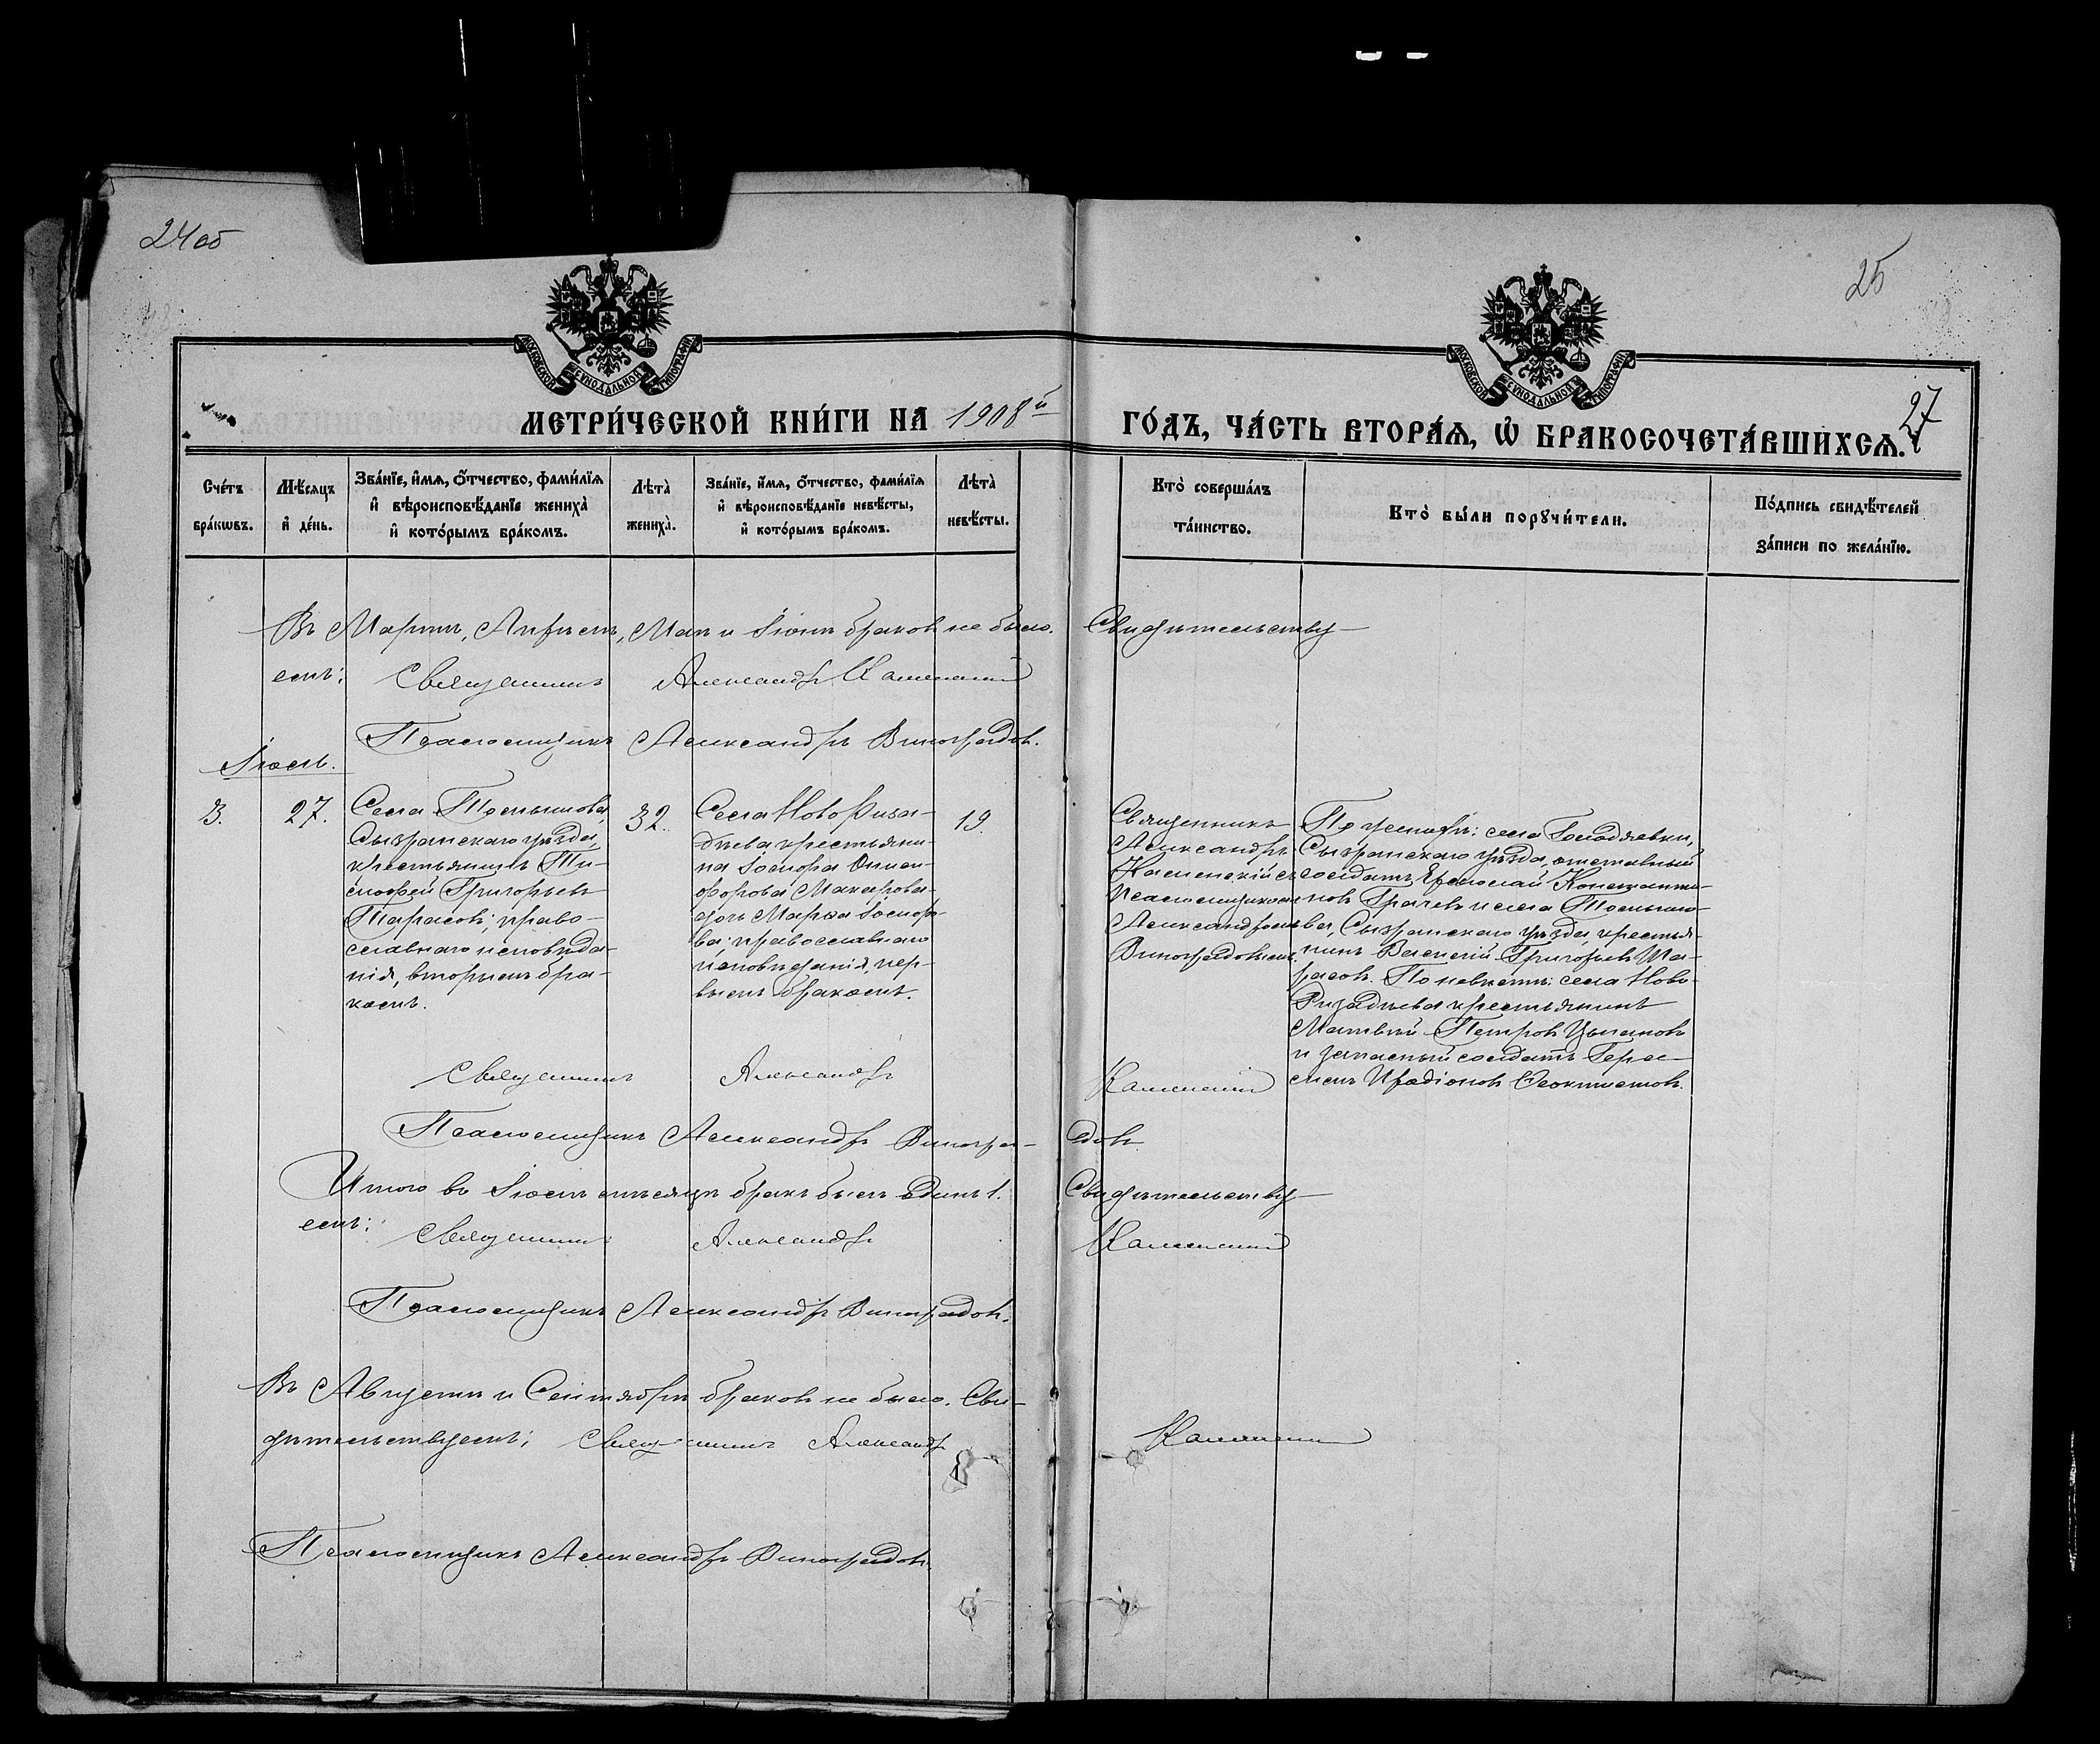 24об
25
МОСКОВСКОЙ СѴНОДАЛЬНОЙ ТИПОГРАФІИ
МОСКОВСКОЙ СѴНОДАЛЬНОЙ ТИПОГРАФІИ
МЕТРИ́ЧЕСКОЙ КНИ́ГИ НА 1908й ГО́ДЪ, ЧА́СТЬ ВТОРА́Я, Ѡ҆ БРАКОСОЧЕТА́ВШИХСЯ.
27
Сче́тъ бра́кѡвъ.
Мѣ́сяцъ и҆ де́нь.
Зва́нїе, и҆́мя, ѻ҆́тчество, фами́лїя и҆ вѣроисповѣ́данїе жениха̀ и҆ кото́рымъ бра́комъ.
Лѣ́та̀ жениха̀.
Зва́нїе, и҆́мя, ѻ҆́тчество, фами́лїя и҆ вѣроисповѣ́данїе невѣ́сты, и҆ кото́рымъ бра́комъ.
Лѣ́та̀ невѣ́сты.
Кто̀ соверша́лъ та́инство.
Кто̀ бы́ли порꙋчи́тели.
По́дпись свидѣ́телей за́писи по жела́нїю.
Въ Мартѣ, Апрѣлѣ, Маѣ и Іюнѣ браковъ не было. Свидѣтельству-
емъ: Священникъ Александръ Каменскій
Псаломщикъ Александръ Виноградовъ.
Іюль.
3.
27.
Села
Сызранскаго уѣзда,
крестьянинъ Ти-
мофей Григорьевъ
Тарасовъ; право-
славнаго исповѣда-
нія, вторымъ бра-
комъ.
32.
Села Ново Риза-
дѣева крестьяни-
на Іосифа Ники-
форова Макарова
дочь Марѳа Іосифо-
ва; православнаго
исповѣданія, пер-
вымъ бракомъ.
19.
Священникъ
Александръ
Каменскій съ
псаломщикомъ
Александромъ
Виноградовымъ.
По женихѣ: села Голодяевки,
Сызранскаго уѣзда, отставный
солдатъ Ермолай Константи-
новъ Грачевъ и села
Сызранскаго уѣзда, крестья-
нинъ Василій Григорьевъ Та-
расовъ. По невѣстѣ: села Ново-
Ризадѣева крестьянинъ
Матвѣй Петровъ Цыгановъ
и запасный солдатъ Гера-
симъ Иродіоновъ Ѳеоктистовъ.
Священникъ Александръ Каменскій
Псаломщикъ Александръ Виногра-
довъ.
Итого въ Іюлѣ мѣсяцѣ бракъ былъ одинъ 1. Свидѣтельству-
емъ: Священникъ Александръ Каменскій
Псаломщикъ Александръ Виноградовъ.
Въ Августѣ и Сентябрѣ браковъ не было. Сви-
дѣтельствуемъ: Священникъ Александръ Каменскій
Псаломщикъ Александръ Виноградовъ.